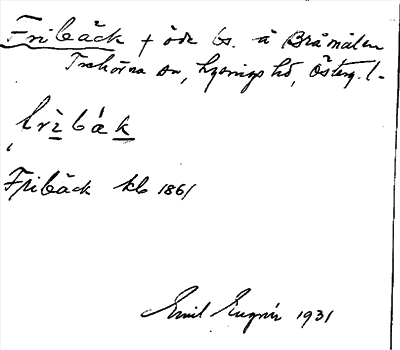 Fribäck † öde bs. å Bråmålen
Trehörna sn, Lysings hd, Österg. l.
frìbák
Fribäck klb 1861
Emil 1931